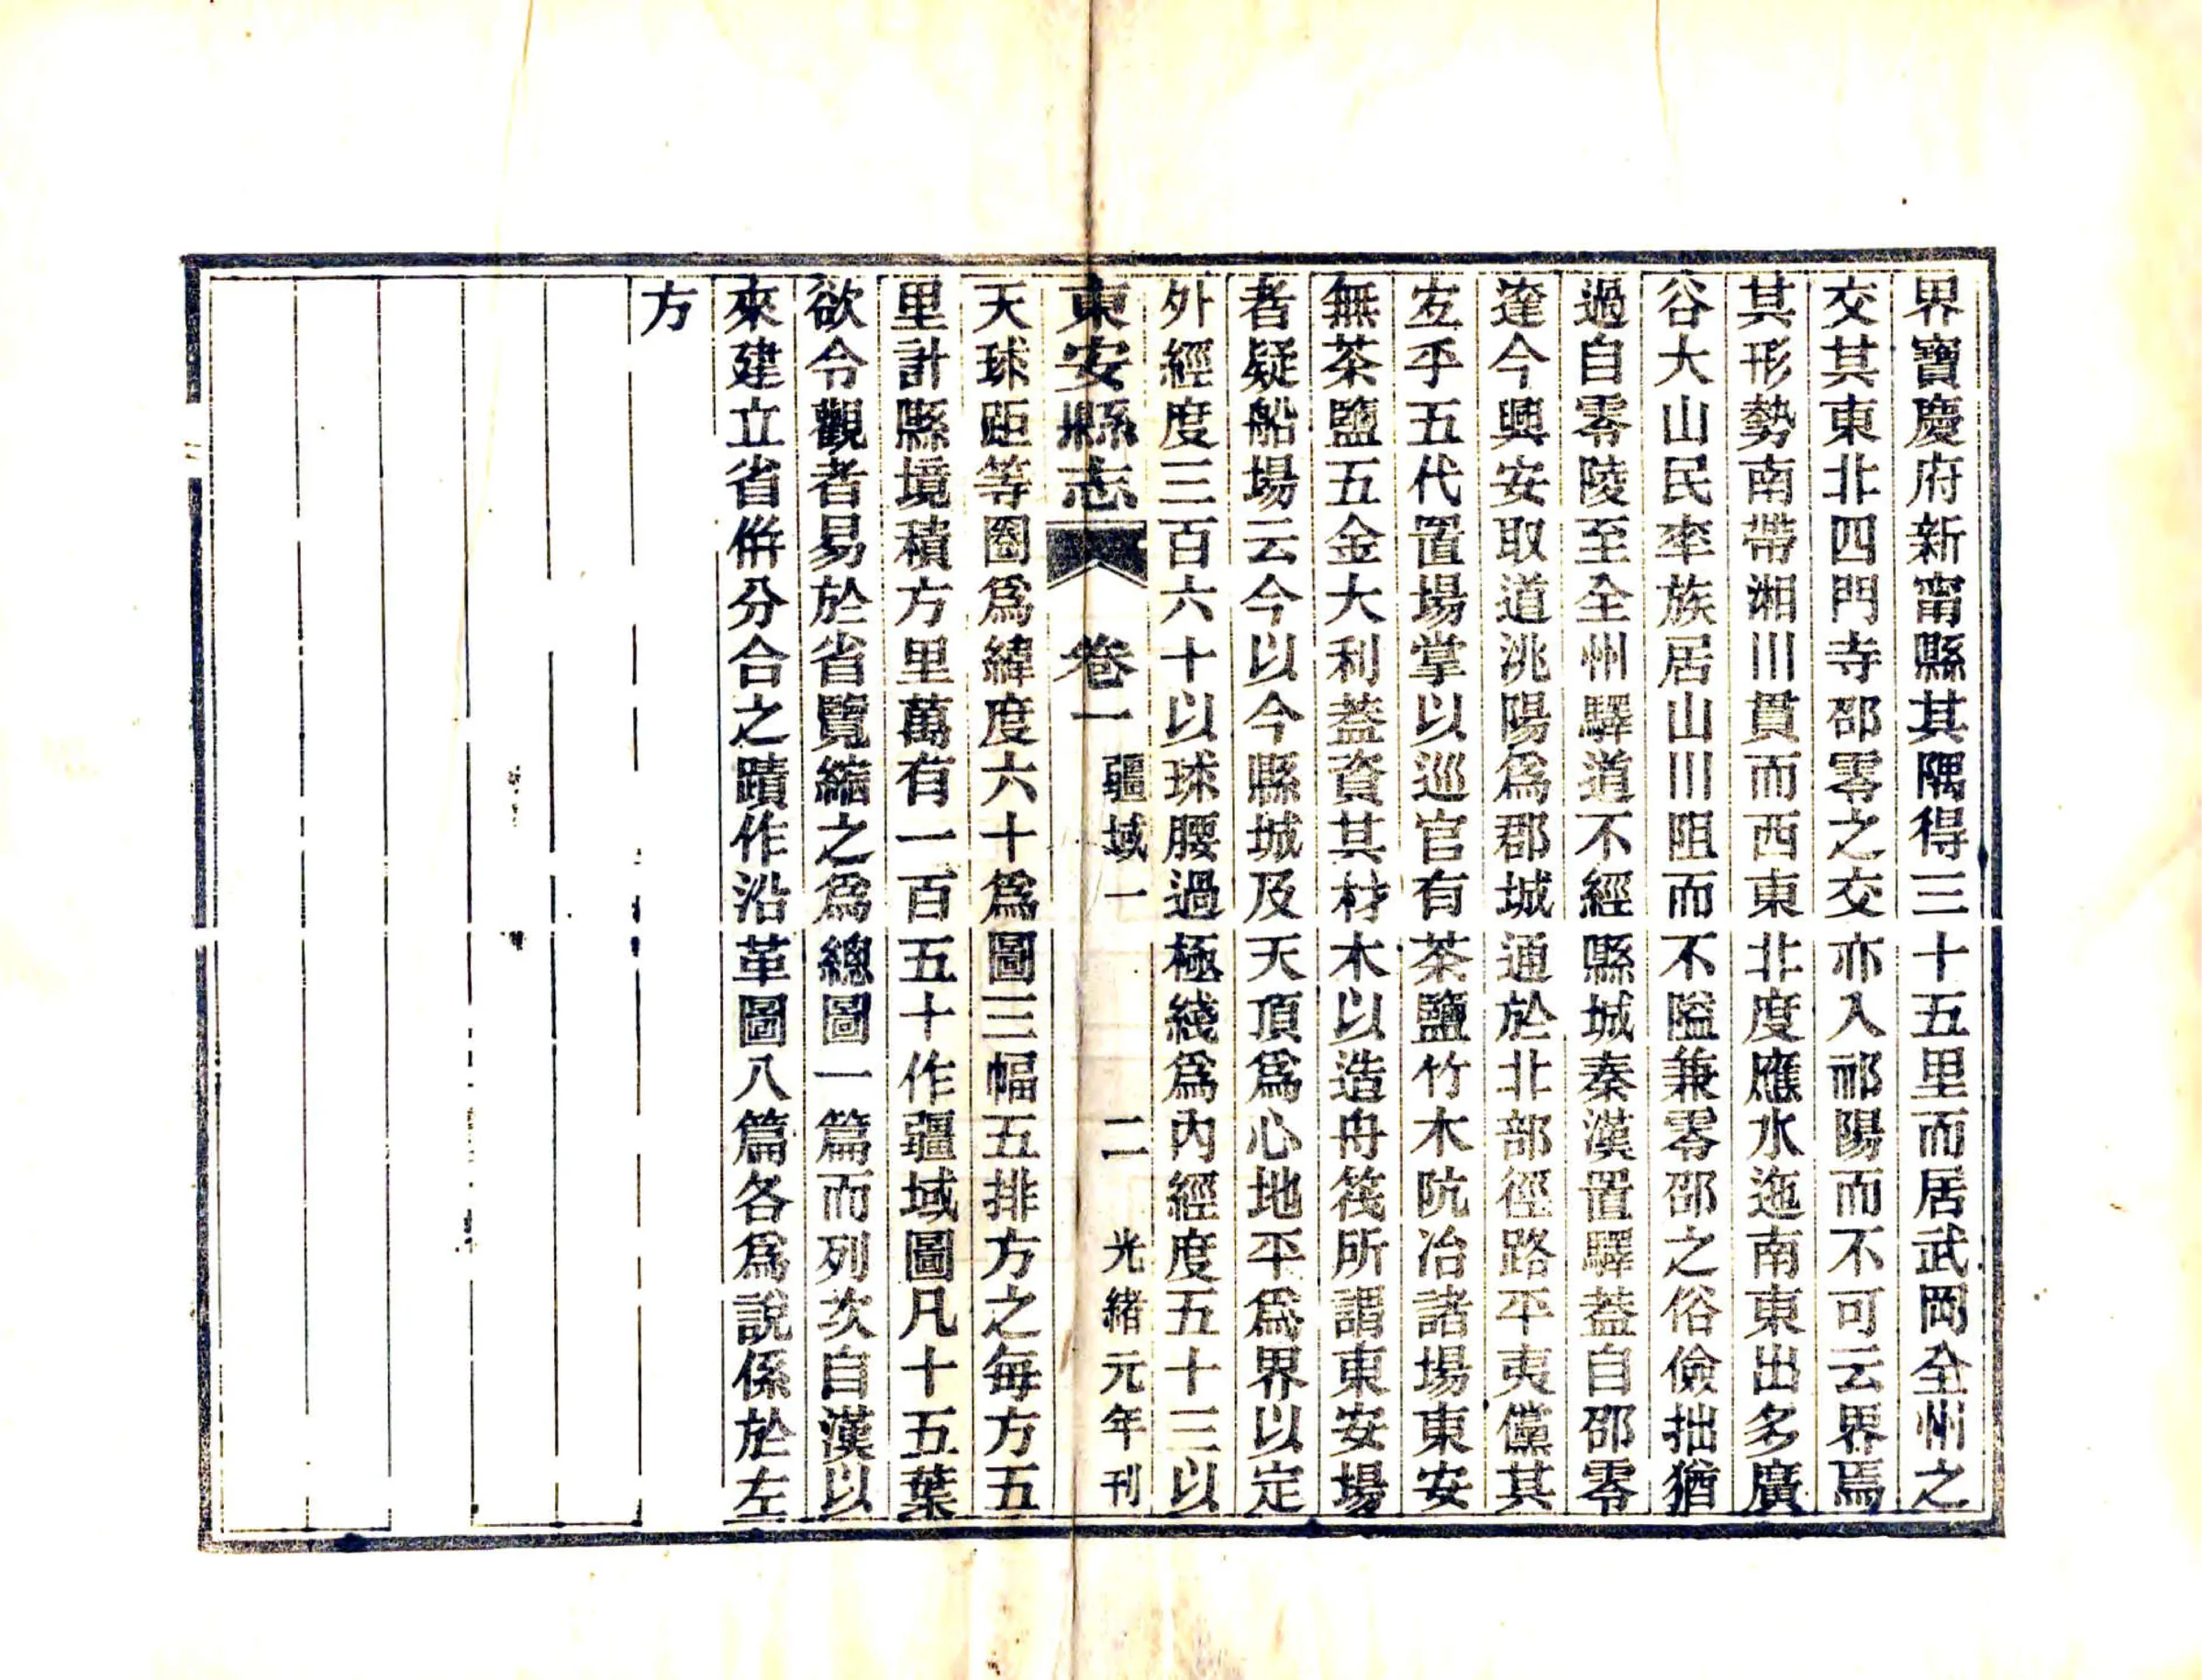 界寶慶府新甯縣其隅得三十五里而居武岡全州之
交其東北四門寺邵零之交亦入祁陽而不可云界焉
其形勢南帶湘川貫而西東北度應水迤南東出多廣
谷大山民率族居山川阻而不隘兼零邵之俗儉拙猶
過自零陵至全州驛道不經縣城秦漢置驛葢自邵零
達今興安取道洮陽爲郡城通於北部徑路平夷儻其
在乎五代置場掌以巡官有茶鹽竹木阬冶諸場東安
無茶鹽五金大利葢資其材木以造舟筏所謂東安場
者疑船場云今以今縣城及天頂爲心地平爲界以定
外經度三百六十以球腰過極綫爲內經度五十三以
東安縣志 卷一 疆域一 二 光緒元年刊
天球距等圈爲緯度六十爲圖三幅五排方之每方五
里計縣境積方里萬有一百五十作疆域圖凡十五葉
欲令觀者易於省覽縮之爲總圖一篇而列次自漢以
來建立省倂分合之蹟作沿革圖八篇各爲說係於左
方